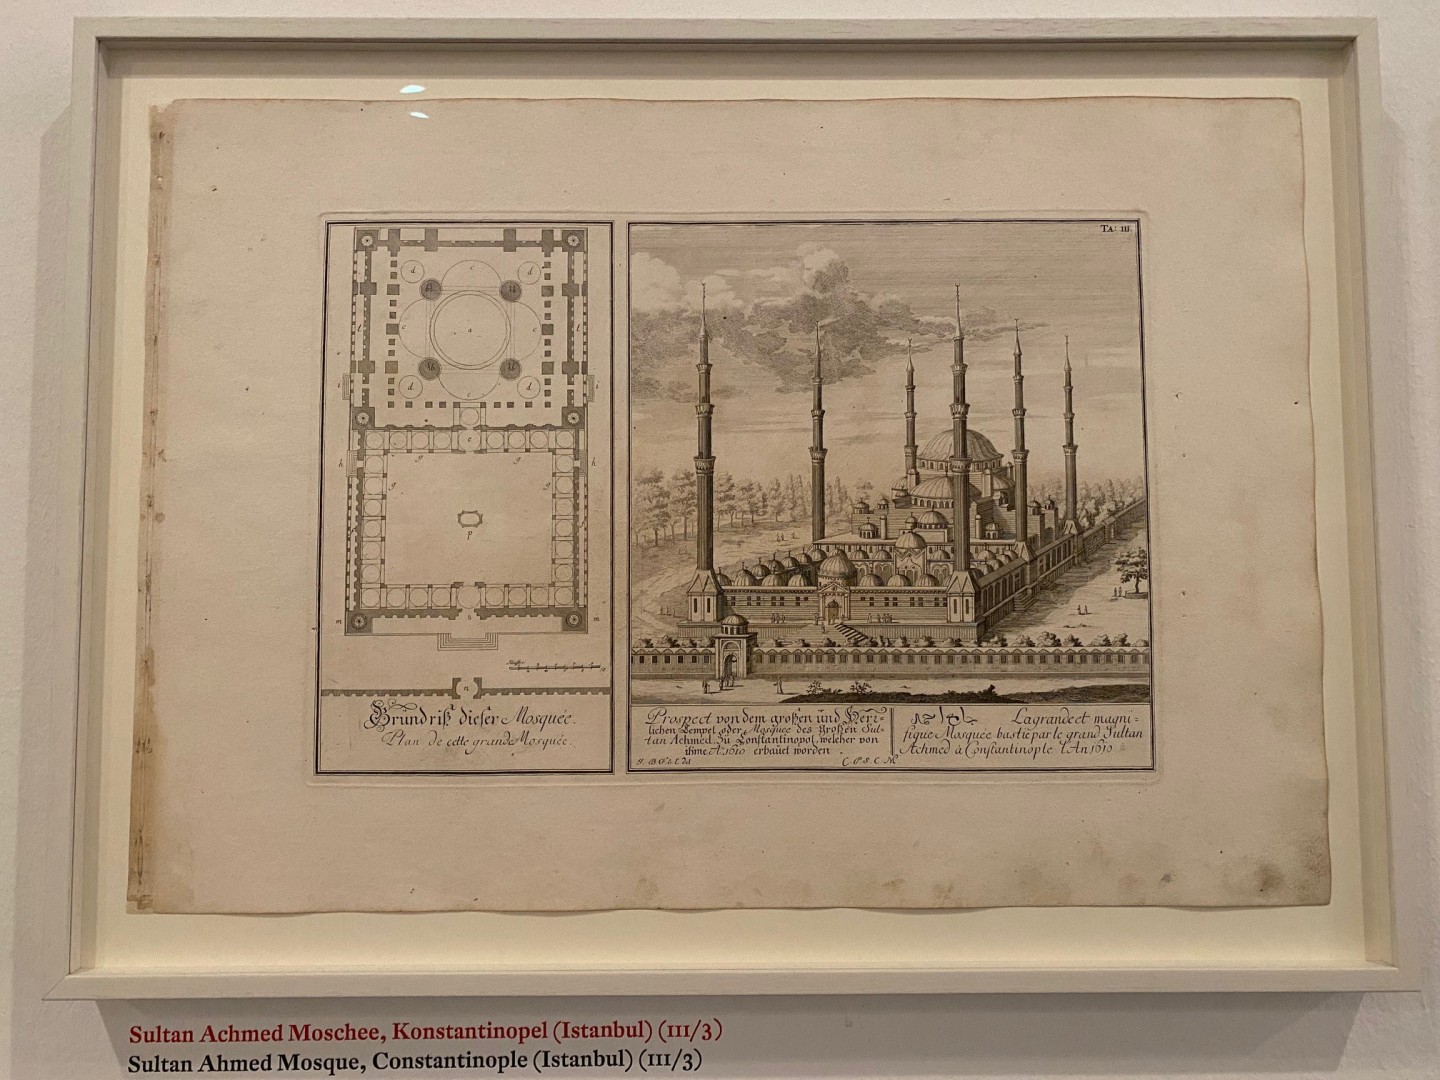 TA: III.
Grundriß dieser Mosquée.
Plan de cette grande Mosquée.
Prospect von dem großen und Herr-
lichen Tempel oder Mosquée des Großen Sul-
tan Achmed. zu Constantinopol, welcher von
ihme A. 1610 erbauet worden.
La grande et magni-
fique Mosquée bastie par le grand Sultan
Achmed à Constantinople l'An 1610
C. P. S. C. M.
Sultan Achmed Moschee, Konstantinopel (Istanbul) (III/3)
Sultan Ahmed Mosque, Constantinople (Istanbul) (III/3)